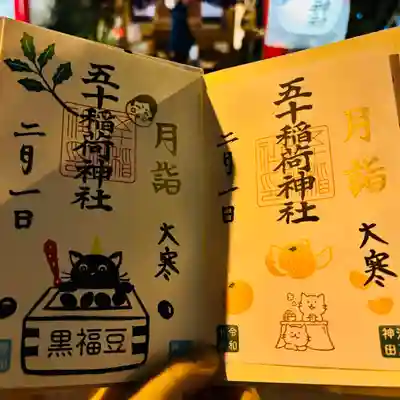 五十稲荷神社
月詣
二月一日
大寒
黒福豆
五十稲荷神社
月詣
二月一日
大寒
令和
神田